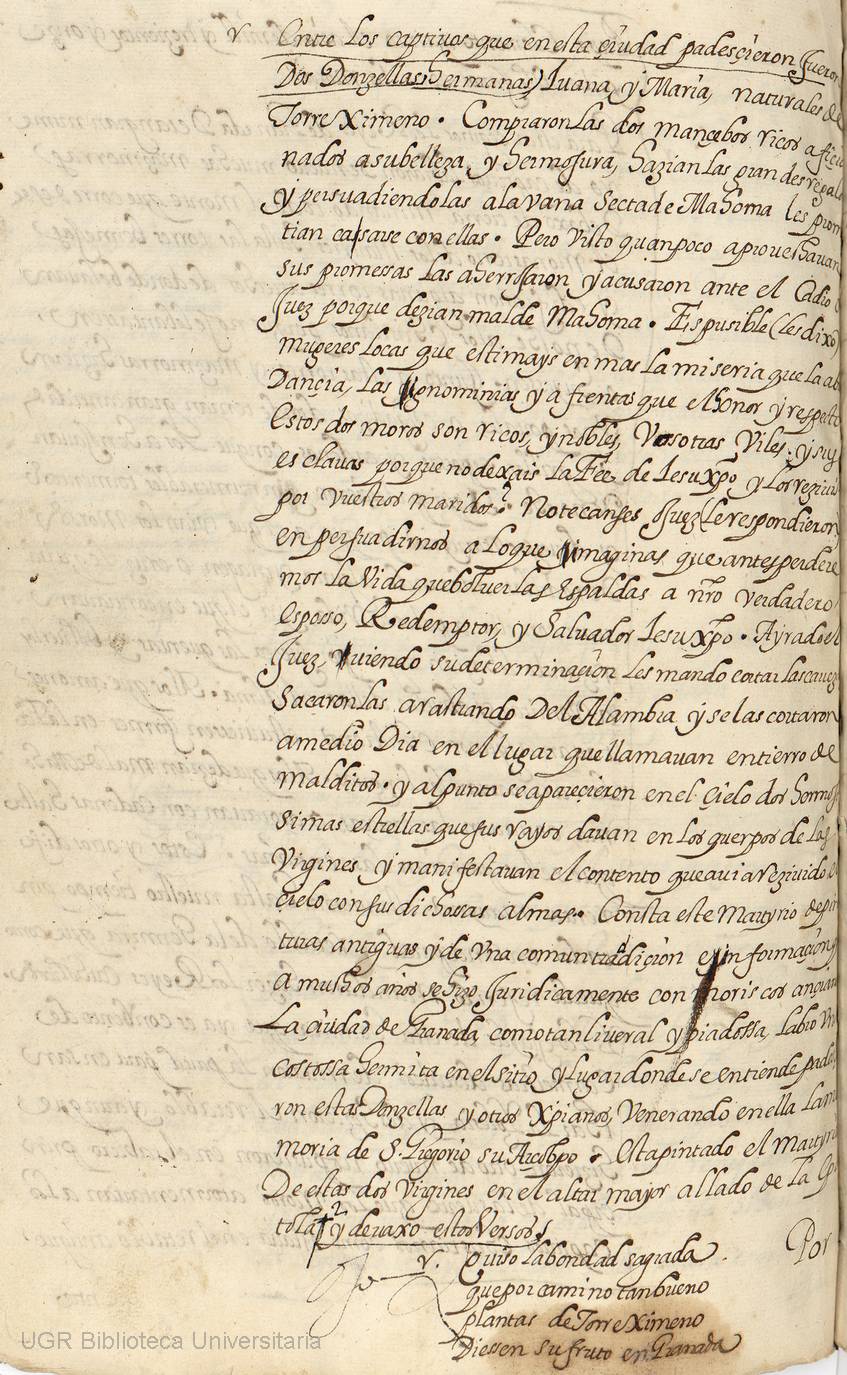 v Entre Los captivos que en esta çiudad padesçieron fueron
Dos Donzellas (Hermanas) Iuana y María, naturales de
Torre Ximeno. Compraron las dos mançebos ricos afiçio
nados a su belleza y hermosura, hazian las grandes regalos
y persuadiendolas a la vana Secta de Mahoma les prom
tian cassarse con ellas. Pero Visto quan poco aprovechavan
sus promessas las aherrojaron y acusaron ante el Cadio o
Juez porque dezian mal de Mahoma. Es pusible (les dixo)
mugeres Locas que estimays en mas la miseria que la ab
Dançia, las ygnominias y afrentas que el honor y respecto
Estos dos moros son ricos, y nobles, Vosotras Viles, y sus
esclavas porque no dexais la Fee de Iesuxp̄o y los rezivis
por vuestros maridos? No te canses Juez (le respondieron)
en persuadirnos a lo que ymaginas que antes perdere
mos la Vida que bolver las Espaldas a nr̄o verdadero
Esposso, Redemptor, y Salvador Iesuxp̄o. Ayrado el
Juez, viendo su determinaçion les mando cortar las cavezas
Sacaron las arastrando Del Alambra y se las cortaron
a medio Dia en el lugar que llamavan entierro de
malditos. y al punto se aparecieron en el Çielo dos hermos
simas estrellas que sus rayos davan en los querpos de las
Virgines y manifestavan el contento que avia rezivido el
çielo con sus dichossas almas. Consta este Martyrio de pin
turas antiguas y de vna comun tradiçion e informaçion q
a muchos años se hizo Juridicamente con moriscos ançian
La çiudad de Granada, como tan liveral y piadossa, labro Vna
costossa hermita en el sitio y lugar donde se entiende padeçie
ron estas Donzellas y otros Xp̄ianos, Venerando en ella la me
moria de S. Gregorio su Arcobpo. Esta pintado el Martyrio
De estas dos Virgines en el altar mayor al lado de la Epis
tola y devaxo estos Versos
v. Quiso la bondad sagrada
que por camino tan bueno
plantas de Torre Ximeno
Diessen su fruto en Granada
Por
UGR Biblioteca Universitaria